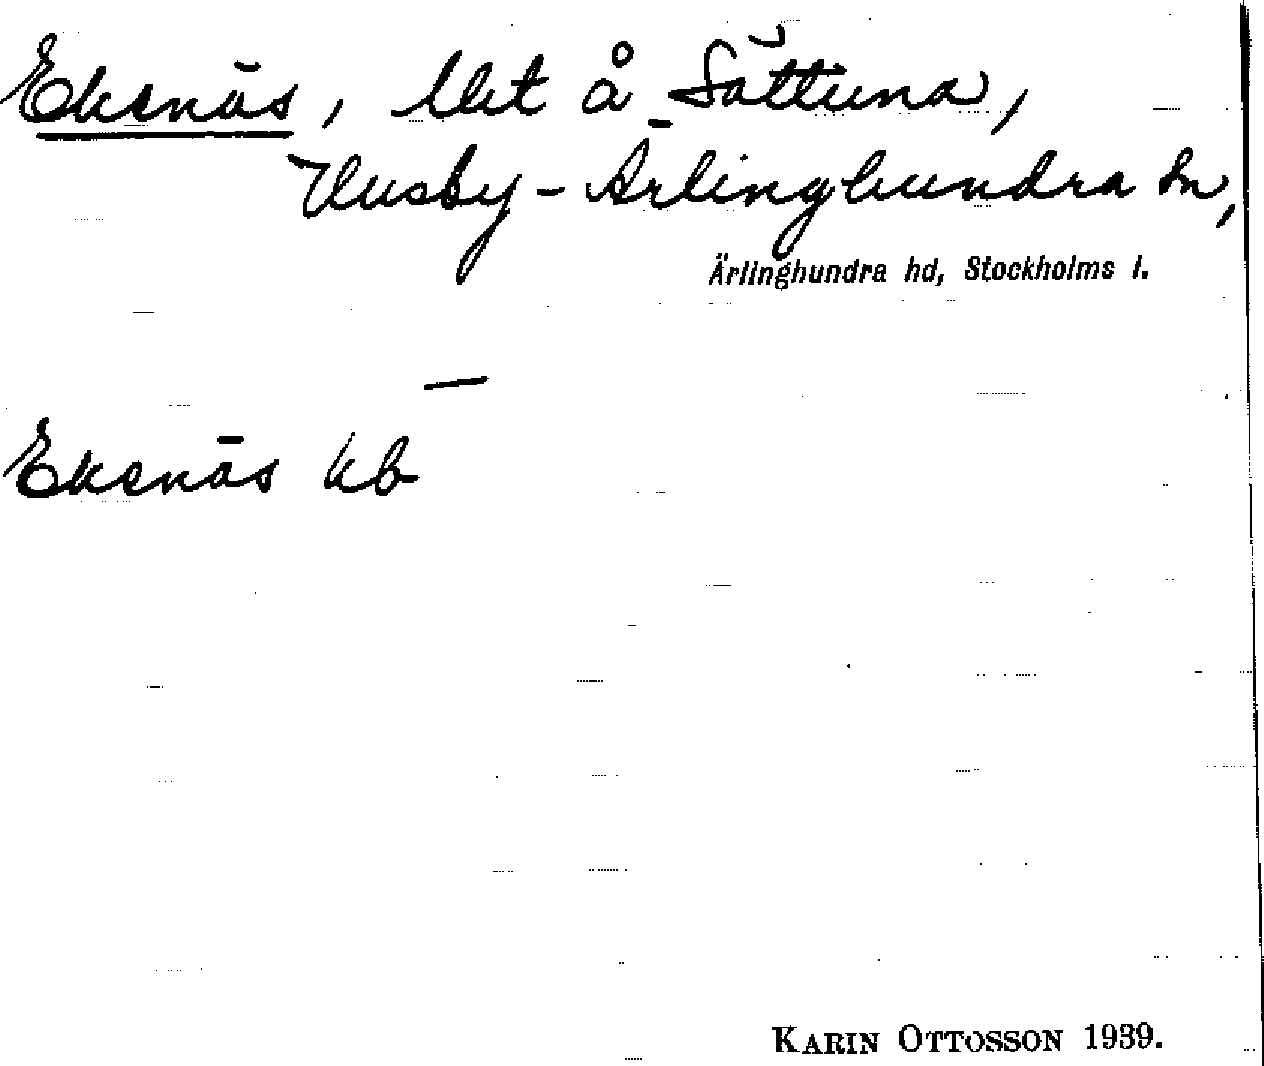 Ekenäs, å Sättuna,
Husby-Ärlinghundra sn,
Ärlinghundra hd, Stockholms l.
—
Ekenäs kb
KARIN OTTOSSON 1939.